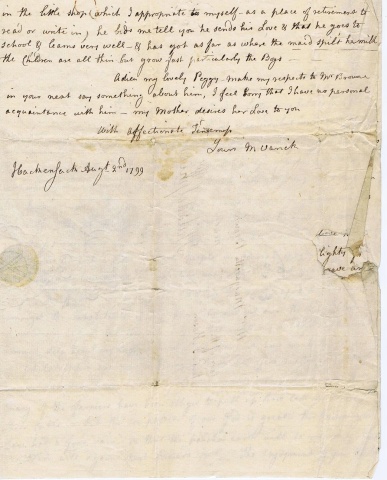 in the little shop (which I appropriate to myself as a place of retirement to
read or write in, he bids me tell you he sends his Love & that he goes to
school & learns very well - & has got as far as where the maid spilt her milk,
the Children are all thin but grow fast perticularly the Boys -
Adieu my lovely Peggy - make my respects to Mr Browne
in your next say something about him, I feel sorry that I have no personal
acquaintance with him - my Mother desires her Love to you
With affectionate
Yours M Varick
Hackensack Augt 2nd 1799
lights